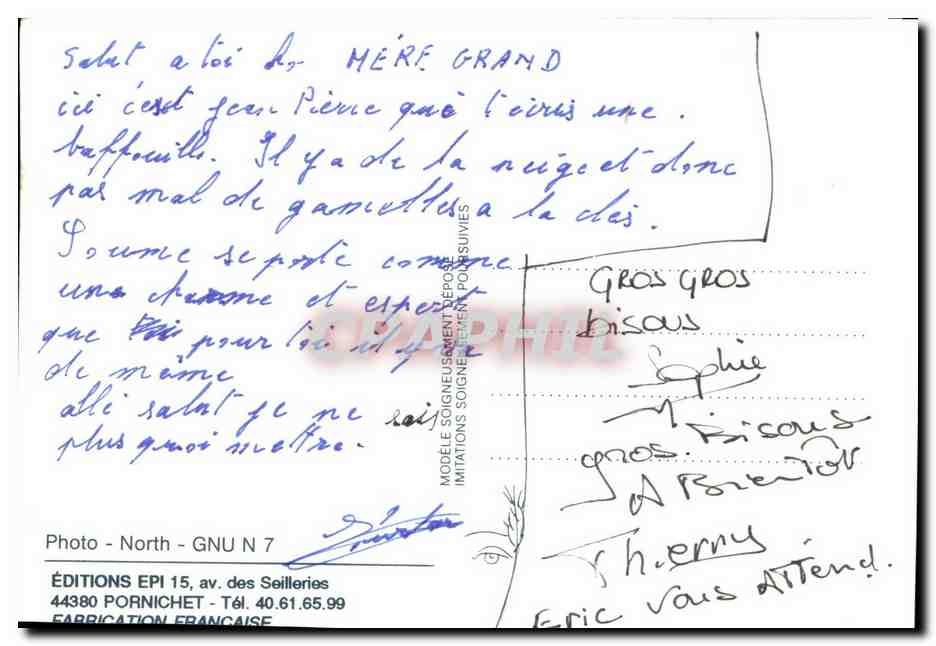 Salut a toi MÈRE GRAND
ici c'est Jean Pierre qui t'écris une
baffouille. Il y a de la neige et donc
pas mal de gamelles a la clés.
se porte comme
une charme et espert
que pour toi il y a
de même
allé salut je ne sais
plus quoi mettre.
GROS GROS
bisous
Sophie
gros. Bisous
A BIENTÔT
Thierry
Eric vous Attend.
MODÈLE SOIGNEUSEMENT DÉPOSÉ
IMITATIONS SOIGNEUSEMENT POURSUIVIES
CPAPHIL
Photo - North - GNU N 7
ÉDITIONS EPI 15, av. des Seilleries
44380 PORNICHET - Tél. 40.61.65.99
FABRICATION FRANÇAISE